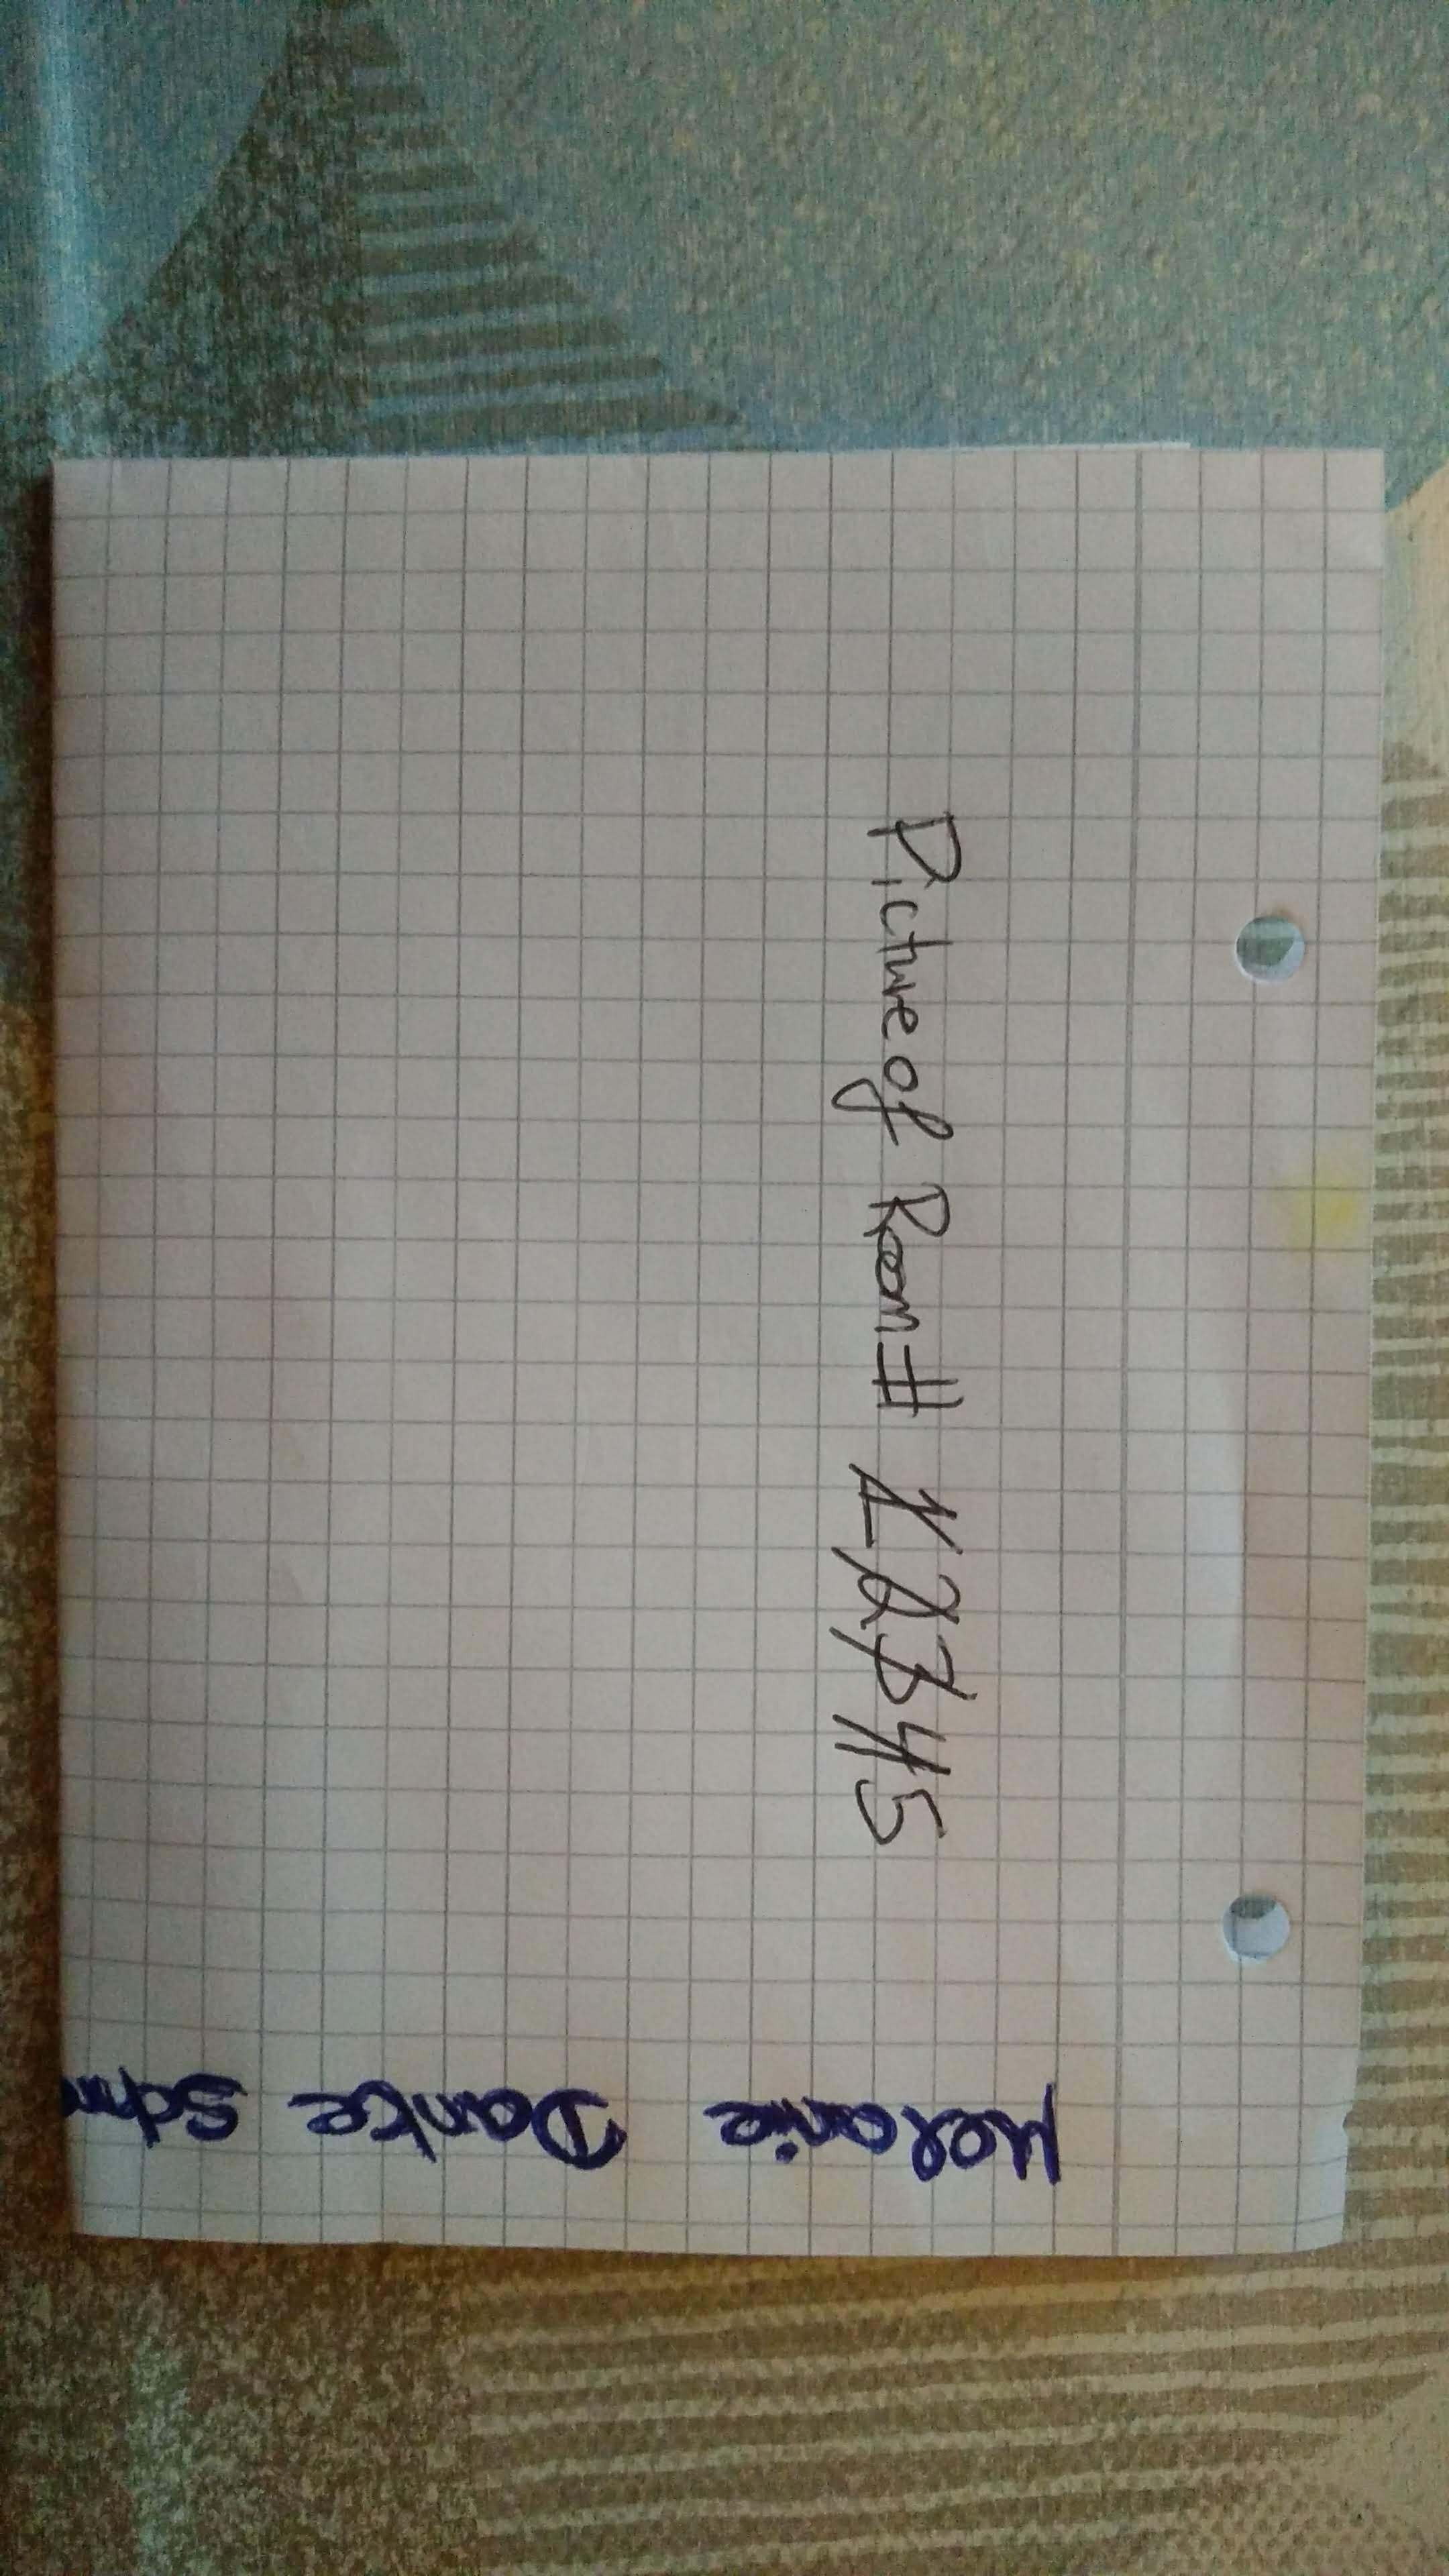 Picture of Room # 12345
Melanie Dante Schm